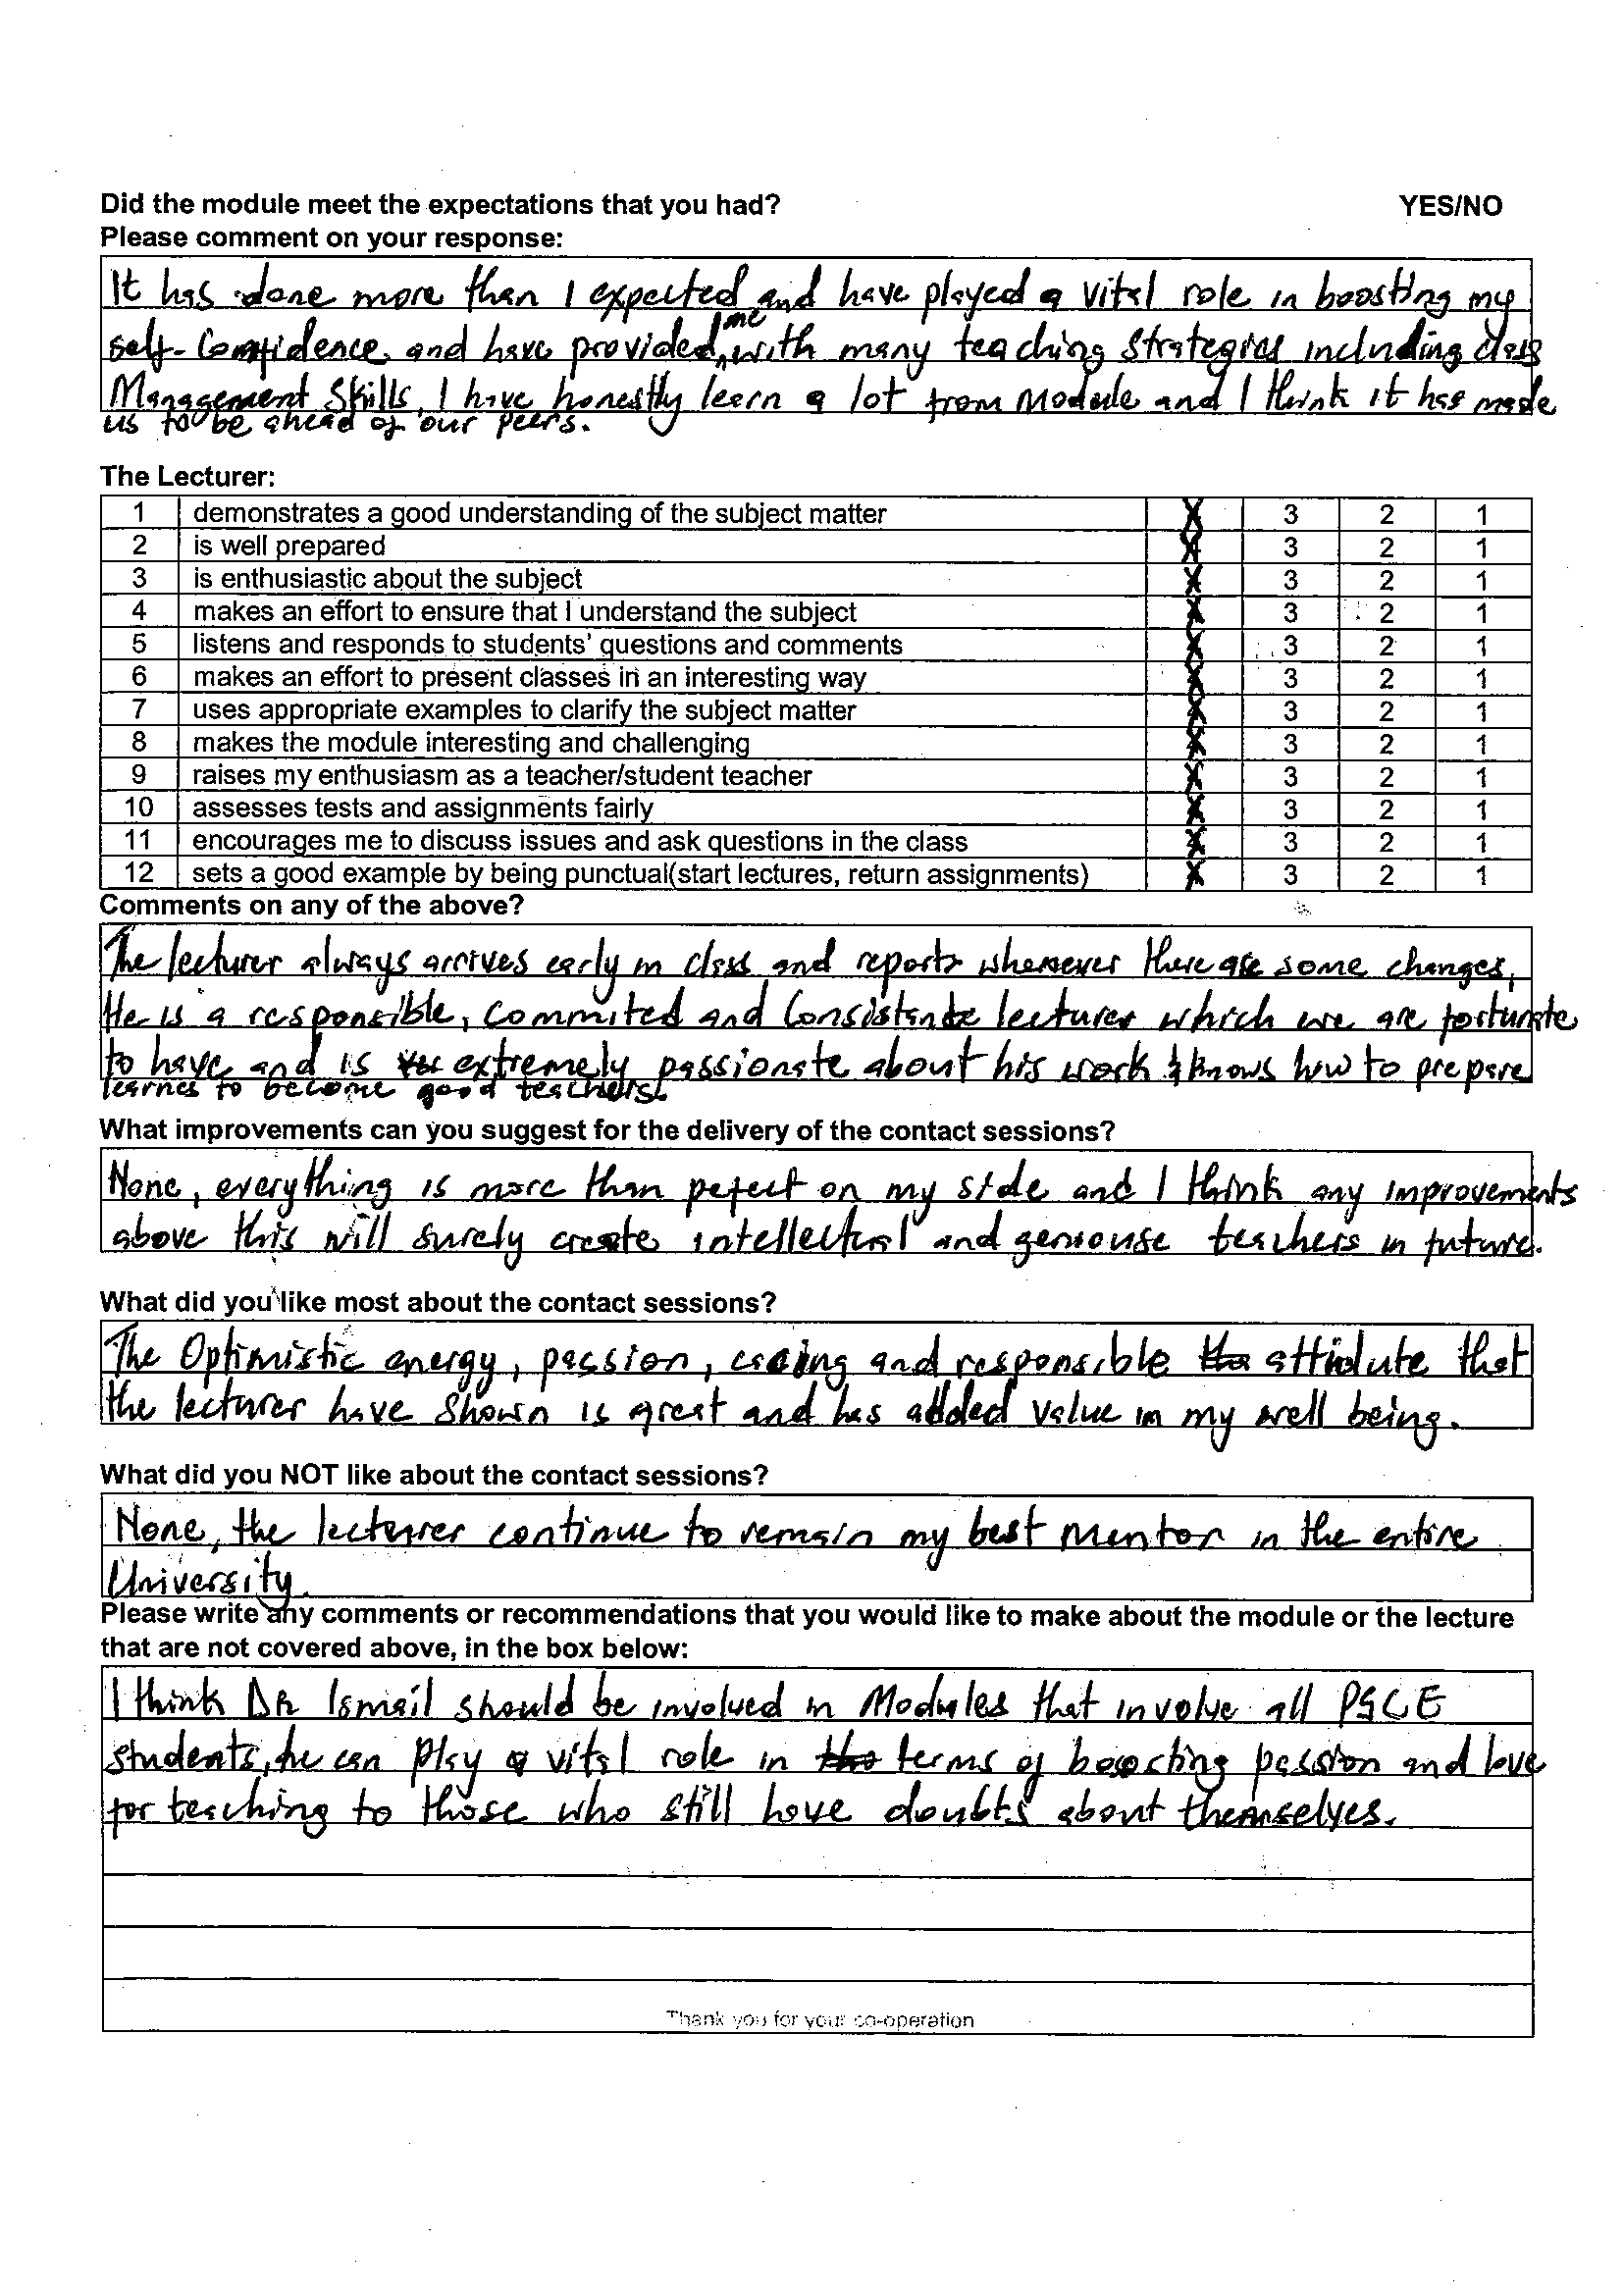 Did the module meet the expectations that you had? YES/NO
Please comment on your response:
It has done more than I expected and have played a vital role in boosting my
self-Confidence and have provided me with many teaching strategies including class
Management Skills, I have honestly learn a lot from Module and I think it has made
us to be ahead of our peers.
The Lecturer:
1 demonstrates a good understanding of the subject matter X 3 2 1
2 is well prepared X 3 2 1
3 is enthusiastic about the subject X 3 2 1
4 makes an effort to ensure that I understand the subject X 3 2 1
5 listens and responds to students' questions and comments X 3 2 1
6 makes an effort to present classes in an interesting way X 3 2 1
7 uses appropriate examples to clarify the subject matter X 3 2 1
8 makes the module interesting and challenging X 3 2 1
9 raises my enthusiasm as a teacher/student teacher X 3 2 1
10 assesses tests and assignments fairly X 3 2 1
11 encourages me to discuss issues and ask questions in the class X 3 2 1
12 sets a good example by being punctual(start lectures, return assignments) X 3 2 1
Comments on any of the above?
The lecturer always arrives early in class and reports whenever there are some changes,
He is a responsible, commited and Consistante lecturer which we are fortunate
to have and is extremely passionate about his work & knows how to prepare
learnes to become good teachers.
What improvements can you suggest for the delivery of the contact sessions?
None, everything is more than pefect on my side and I think any improvements
above this will surely create intellectual and geniouse teachers in future.
What did you like most about the contact sessions?
The Optimistic energy, passion, caring and responsible attidute that
the lecturer have shown is great and has added value in my well being.
What did you NOT like about the contact sessions?
None, the lecturer continue to remain my best mentor in the entire
University.
Please write any comments or recommendations that you would like to make about the module or the lecture
that are not covered above, in the box below:
I think DR Ismail should be involved in Modules that involve all PGCE
students, he can play a vital role in terms of boosting passion and love
for teaching to those who still have doubts about themselves.
Thank you for your co-operation